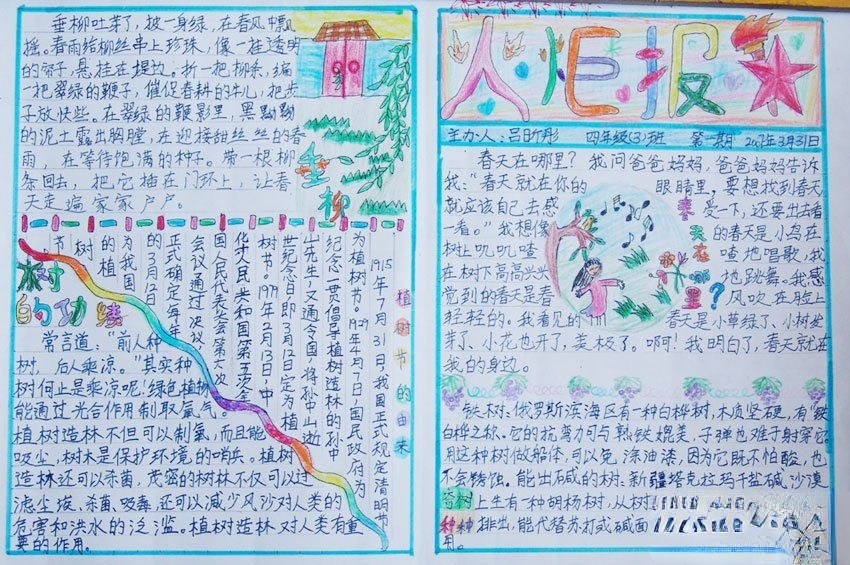 垂柳吐芽了，披一身绿，在春风中飘
摇。春雨给柳丝串上珍珠，像一挂透明
的帘子，悬挂在堤边。折一把柳条，编
一把翠绿的鞭子，催促春耕的牛儿，把步
子放快些。在翠绿的鞭影里，黑黝黝
的泥土露出胸膛，在迎接甜丝丝的春
雨，在等待饱满的种子。带一根柳
条回去，把它插在门环上，让春
天走遍家家户户。
垂柳
植树节的由来
1915年7月31日，我国正式规定清明节
为植树节。1929年4月7日，国民政府为
纪念一贯倡导植树造林的孙中
山先生，又通令全国，将孙中山逝
世纪念日即3月12日定为植
树节。1979年2月13日，中
华人民共和国第五次全
国人民代表大会第六次
会议通过决议，
正式确定每年
的3月12日
为我国
的植
树
节
树的功绩
常言道：“前人种
树，后人乘凉。”其实种
树何止是乘凉呢！绿色植物
能通过光合作用制取氧气。
植树造林不但可以制氧，而且能
吸尘，树木是保护环境的哨兵。植树
造林还可以杀菌。茂密的树林不仅可以过
滤尘埃、杀菌、吸毒，还可以减少风沙对人类的
危害和洪水的泛滥。植树造林对人类有重
要的作用。
火炬报
主办人：吕昕彤 四年级(3)班 第一期 2007年3月31日
春天在哪里？我问爸爸妈妈，爸爸妈妈告诉
我：“春天就在你的眼睛里，要想找到春天
就应该自己去感受一下，还要出去看
一看。”我想像的春天是小鸟在
树上叽叽喳喳地唱歌，我
在树下高高兴兴地跳舞。我感
觉到的春天是春风吹在脸上
轻轻的。我看见的春天是小草绿了、小树发
芽了、小花也开了，美极了。啊！我明白了，春天就在
我的身边。
春天在哪里？
铁树：俄罗斯滨海区有一种白桦树，木质坚硬，有“铁
白桦之称。它的抗弯力可与熟铁媲美，子弹也难于射穿它。
用这种树做船体，可以免涂油漆，因为它既不怕酸，也
不会锈蚀。能出碱的树：新疆塔克拉玛干盐碱沙漠
上生有一种胡杨树，从树
排出，能代替苏打或碱面
用。
奇树种种